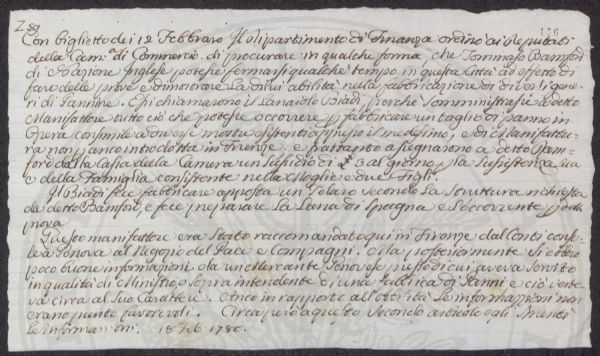 Con biglietto dei 12 Febbraro Il Dipartimento di Finanza ordinò ai Deputati
della Cam.a di Commercio di procurare in qualche forma, che Tommaso Bamford
di Nazione Inglese potesse fermarsi qualche tempo in questa Città ad effetto di
fare delle prove e dimostrare la di lui abilità nella fabbricazione di diversi gene
ri di Pannine. Essi chiamarono il Lanaiolo Biadi, perche somministrasse a detto
Manifattore tutto ciò che potesse occorrere p fabbricare un taglio di panno in
Opera conforme a diverse mostre esistenti appresso il medesimo, e di Manifattu
ra non pianco introdotta in Firenze e pertanto assegnarono a detto Bam
ford dalla Cassa della Camera un Sussidio di 3 al giorno p la sussistenza sua
e della Famiglia consistente nella Moglie e due Figli.
Il Biadi fece fabbricare apposta un Telaro secondo la struttura richiesta
da detto Bamford, e fece preparare la Lana di Spagna e l'occorrente p detta
prova
Questo manifattore era stato raccomandato qui in Firenze dal Conti conso
le a Genova al Negozio del Pace e Compagni. Ma posteriormente si ebbero
poco buone informazioni da un Mercante Genovese presso di cui aveva servito
in qualità di Ministro soprintendente d'una Fabbrica di Panni e ciò verte
va circa al suo Carattere. Anco in rapporto all'abilità le informazioni non
erano punto favorevoli. Circa però a questo secondo articolo egli smentì
le informazioni. 15 Feb. 1780.